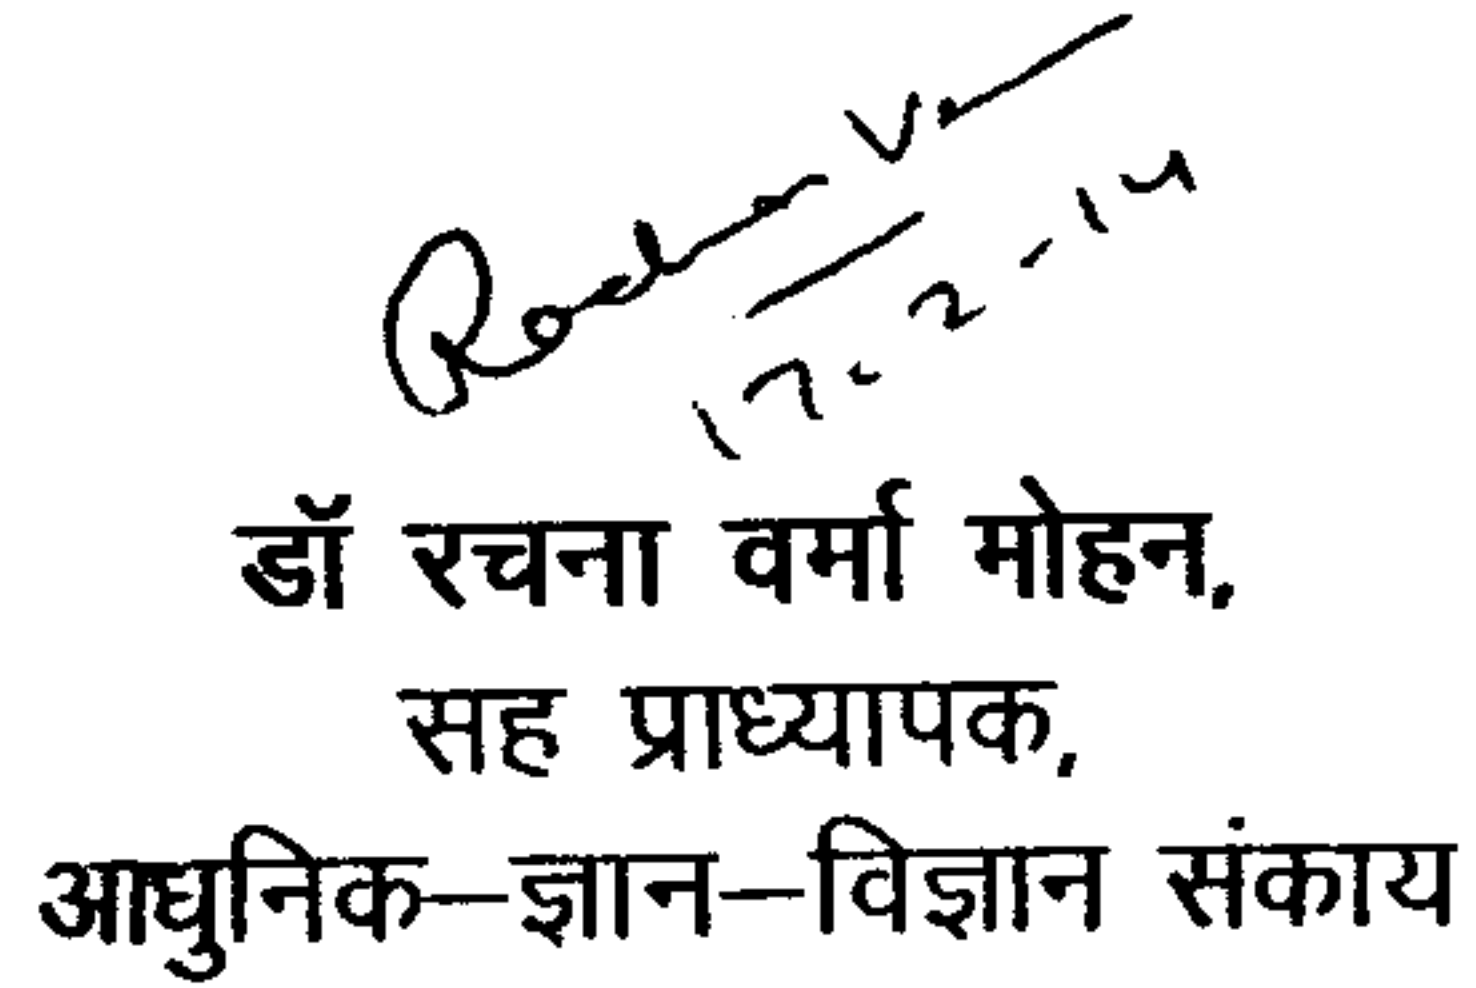 17.2-14
डॉ रचना वर्मा मोहन,
सह प्राध्यापक,
आधुनिक–ज्ञान–विज्ञान संकाय